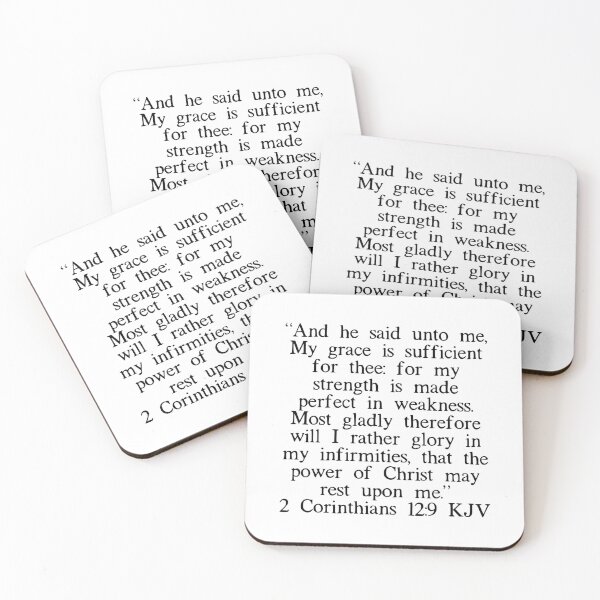 “And he said unto me,
My grace is sufficient
for thee: for my
strength is made
perfect in weakness.
Most
glory
that
“And he said unto me,
My grace is sufficient
for thee: for my
strength is made
perfect in weakness.
Most gladly therefore
will I rather glory in
my infirmities, that the
power of Christ may
“And he said unto me,
My grace is sufficient
for thee: for my
strength is made
perfect in weakness.
Most gladly therefore
will I rather glory in
my infirmities,
power of
rest upon
2 Corinthians
“And he said unto me,
My grace is sufficient
for thee: for my
strength is made
perfect in weakness.
Most gladly therefore
will I rather glory in
my infirmities, that the
power of Christ may
rest upon me.”
2 Corinthians 12:9 KJV